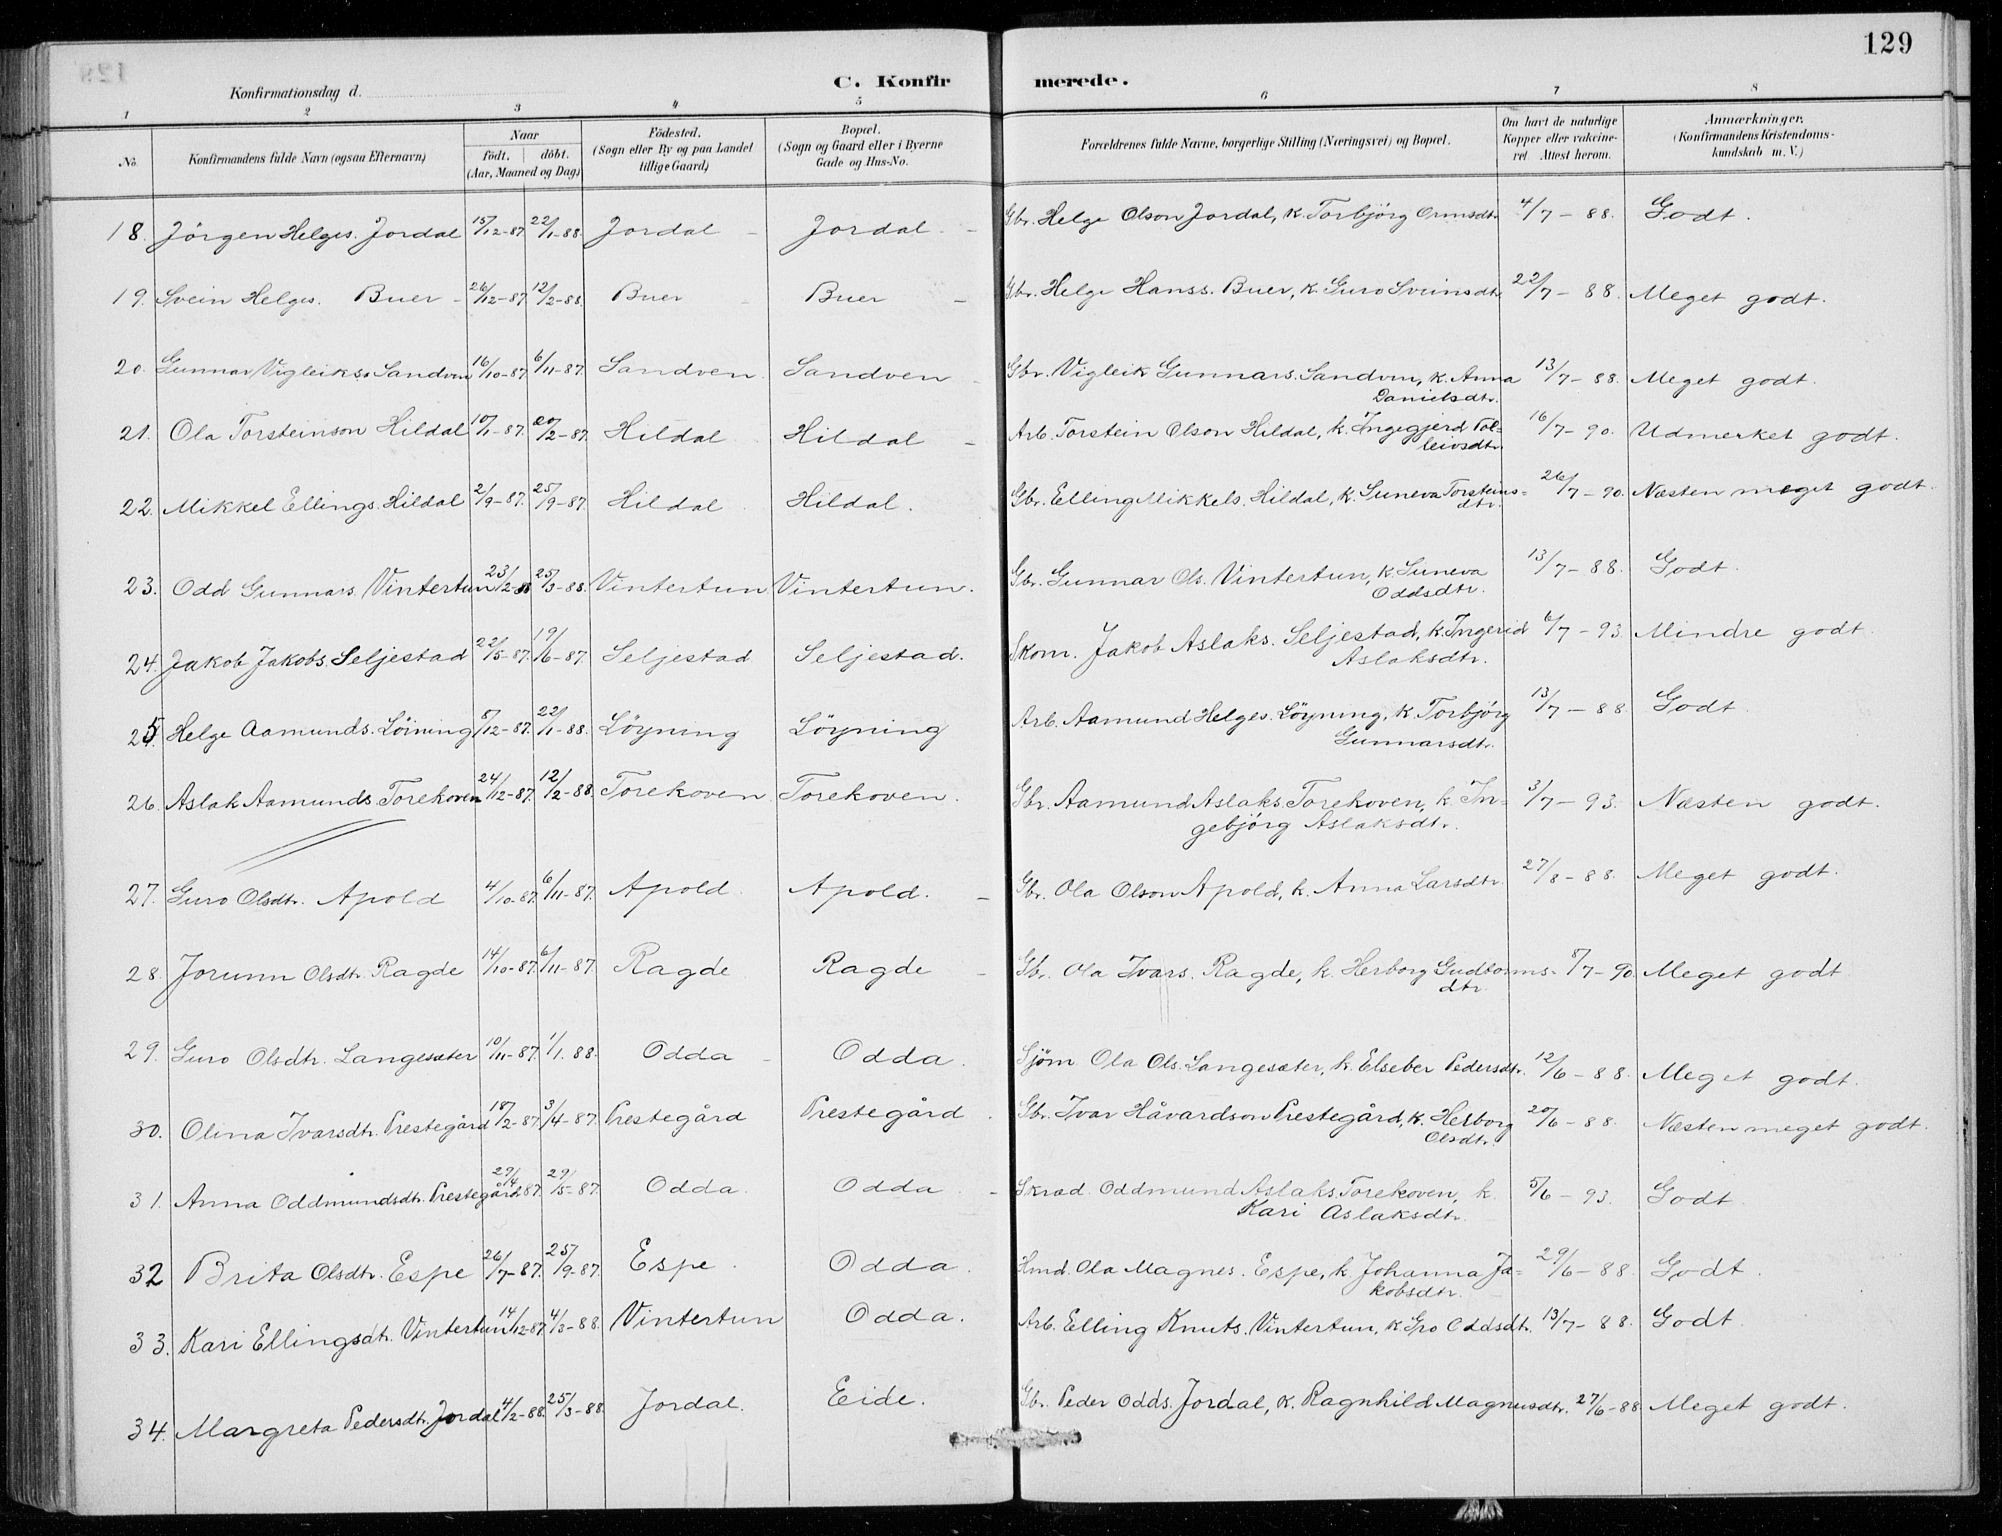 129
Konfirmationsdag d.
C. Konfirmerede.
1 2 3 4 5 6 7 8
No. Konfirmandens fulde Navn (ogsaa Efternavn) Naar födt. döbt. (Aar, Maaned og Dag) Födested. (Sogn eller By og paa Landet tillige Gaard) Bopæl. (Sogn og Gaard eller i Byerne Gade og Hus-No. Forældrenes fulde Navne, borgerlige Stilling (Næringsvei) og Bopæl. Om havt de naturlige Kopper eller vakcineret Attest herom. Anmærkninger. (Konfirmandens Kristendomskundskab m. V.)
18. Jörgen Helges. Jordal 15/12-87 22/1-88. Jordal - Jordal - Gbr. Helge Olson Jordal, k. Torbjörg Ormsdt. 4/7-88. Godt.
19. Svein Helges. Buer - 26/12-87. 12/2-88. Buer - Buer - Gbr. Helge Hanss. Buer, k. Guro Sveinsdt. 22/7-88. Meget godt.
20. Gunnar Vigleiks. Sandven 16/10-87. 6/11-87. Sandven. Sandven - Gbr. Vigleik Gunnars. Sandven, k. Anna Danielsdtr. 13/7-88. Meget godt.
21. Ola Torsteinson Hildal 10/1-87. 20/2-87. Hildal Hildal - Arb. Torstein Olson Hildal, k. Ingegjerd Tolleivsdtr. 16/7-90. Udmerket godt.
22. Mikkel Ellings. Hildal 2/9-87. 25/9-87. Hildal. Hildal. Gbr. Elling Mikkels. Hildal, k. Suneva Torsteins=dtr. 26/7-90. Næsten meget godt.
23. Odd Gunnars. Vintertun 23/2-88 25/3-88. Vintertun Vintertun. Gbr. Gunnar Ols. Vintertun, k. Suneva Oddsdtr. 13/7-88. Godt.
24. Jakob Jakobs. Seljestad 22/5-87. 19/6-87. Seljestad Seljestad. Skom. Jakob Aslaks. Seljestad, k. Ingerid Aslaksdtr. 6/7-93. Mindre godt.
25. Helge Aamunds. Löining 8/12-87. 22/1-88. Löyning Löyning Arb. Aamund Helges. Löyning, k. Torbjörg Gunnarsdtr. 13/7-88 Godt.
26. Aslak Aamunds. Torekoven 24/12-87. 12/2-88. Torekoven Torekoven. Gbr. Aamund Aslaks. Torekoven, k. In=gebjörg Aslaksdtr. 3/7-93. Næsten godt.
27. Guro Olsdtr. Apold 4/10-87. 6/11-87. Apold. Apold. - Gbr. Ola Olson Apold, k. Anna Larsdtr. 27/8-88. Meget godt.
28. Jorunn Olsdtr. Ragde 14/10-87. 6/11-87. Ragde Ragde - Gbr. Ola Ivars. Ragde, k. Herborg Gudtorms-dtr. 8/7-90. Meget godt
29. Guro Olsdtr. Langesæter 10/11-87. 1/1.88. Odda - Odda. Sjöm. Ola Ols. Langesæter, k. Elseber Pedersdtr. 12/6-88. Meget godt.
30. Olina Ivarsdtr. Prestegård 18/2-87. 3/4-87. Prestegård Prestegård. Gbr. Ivar Håvardson Prestegård, k. Herborg Olsdtr. 20/6-88. Næsten meget godt.
31. Anna Oddmundsdtr. Prestegård 29/4 87. 29/5-87. Odda. Odda. - Skræd. Oddmund Aslaks. Torekoven, k. Kari Aslaksdtr. 5/6-93. Godt
32 Brita Olsdtr. Espe 26/7-87. 25/9-87. Espe. Odda. Hmd. Ola Magnes. Espe, k. Johanna Ja=kobsdtr. 29/6-88. Godt.
33. Kari Ellingsdtr. Vintertun 14/12-87. 4/3-88. Vintertun Odda. Arb. Elling Knuts. Vintertun, k. Gro Oddsdt. 13/7-88. Godt.
34. Margreta Pedersdtr. Jordal 4/2-88. 25/3-88. Jordal. Eide. Gbr. Peder Odds. Jordal, k. Ragnhild Magnusdtr. 27/6-88 Meget godt.